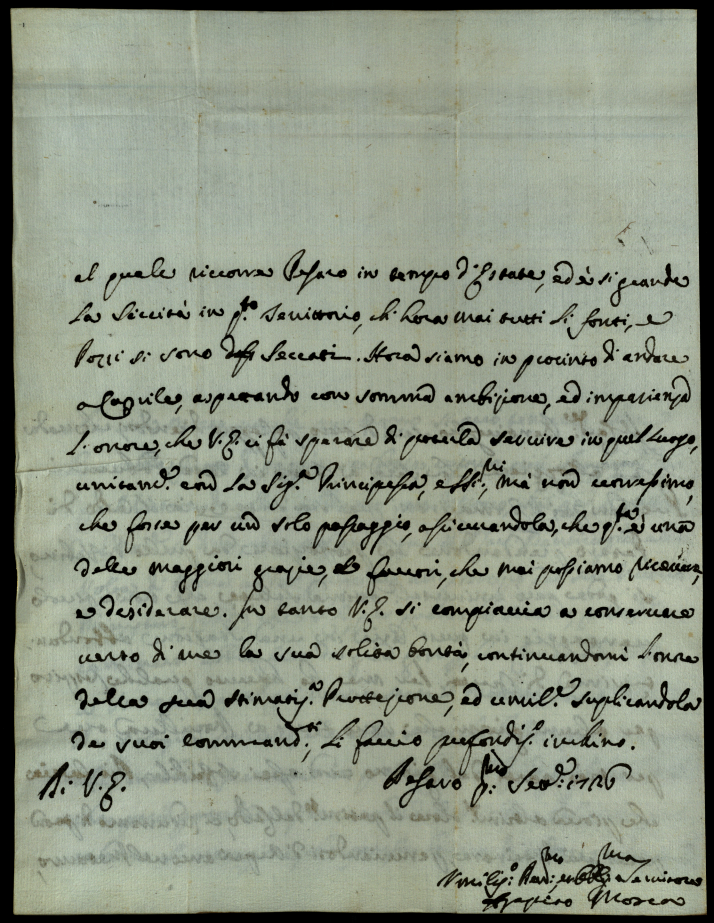 al quale ricorre Pesaro in tempo d'Estate, ed è si grande
La Siccità in q.to Territorio, ch'hora mai tutti li fonti, e
Pozzi si sono Seccati. Hora siamo in procinto di andare
a Caprile, aspettando con somma ambizione, ed impazienza
L'onore, che V.E. ci fà sperare di poterla servire in quel Luogo,
unitam.e con La Sig.a Principessa, e ma non vorressimo,
che fosse per un solo passaggio, assicurandola, che q.ta è una
delle maggiori grazie, e favori, che mai possiamo ricevere,
e desiderare. In tanto V.E. si compiaccia a conservare
verso di me la sua solita bontà, continuandomi L'onore
della sua stimatis.a Prottezione, ed umil.e suplicandola
de suoi commandi.ti, Li faccio profondis.o inchino.
Di V.E. Pesaro p.mo Sett.e 1726
Umilis.o Dev.mo, ed Obblig.mo Servitore
Agapito Mosca